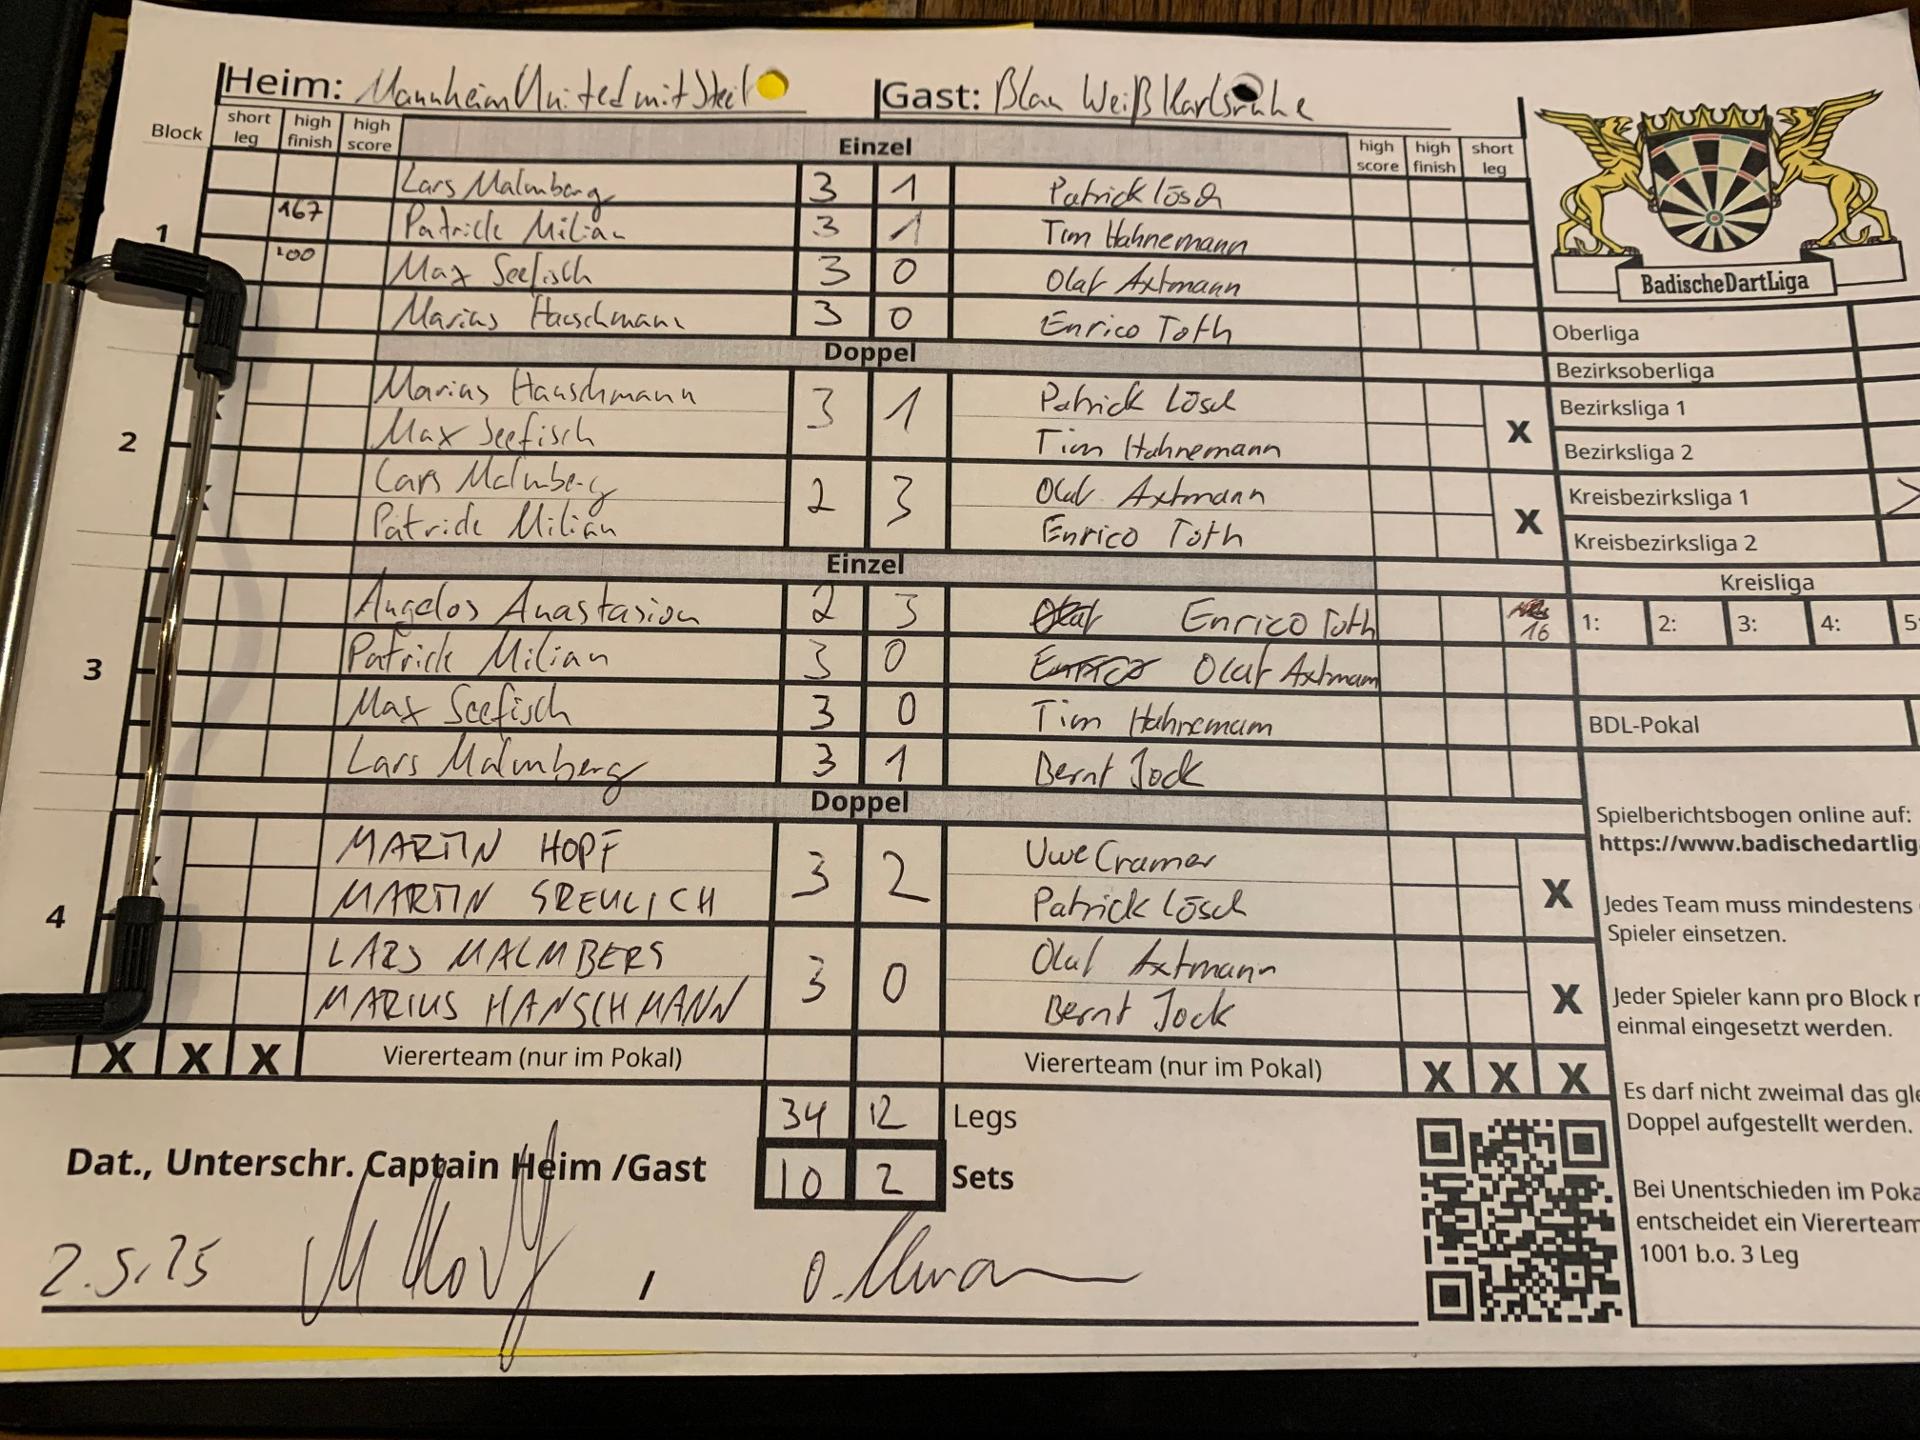 Heim: Mannheim United mit Steel Gast: Blau Weiß Karlsruhe
Block short leg high finish high score Einzel high score high finish short leg
1
Lars Malmberg 3 1 Patrick Lösch
167 Patrick Milian 3 1 Tim Hahnemann
100 Max Seefisch 3 0 Olaf Axtmann
Marius Hanschmann 3 0 Enrico Toth
Doppel
2
Marius Hanschmann 3 1 Patrick Lösch X
Max Seefisch Tim Hahnemann
Lars Malmberg 2 3 Olaf Axtmann X
Patrick Milian Enrico Toth
Einzel
3
Angelos Anastasiou 2 3 Enrico Toth 16
Patrick Milian 3 0 Enrico Olaf Axtmann
Max Seefisch 3 0 Tim Hahnemann
Lars Malmberg 3 1 Bernt Jock
Doppel
4
MARTIN HOPF 3 2 Uwe Cramer X
MARTIN GREULICH Patrick Lösch
LARS MALMBERG 3 0 Olaf Axtmann X
MARIUS HANSCHMANN Bernt Jock
X X X Viererteam (nur im Pokal) Viererteam (nur im Pokal) X X X
34 12 Legs
10 2 Sets
Dat., Unterschr. Captain Heim /Gast
2.5.25
BadischeDartLiga
Oberliga
Bezirksoberliga
Bezirksliga 1
Bezirksliga 2
Kreisbezirksliga 1
Kreisbezirksliga 2
Kreisliga
1: 2: 3: 4: 5:
BDL-Pokal
Spielberichtsbogen online auf:
https://www.badischedartlig
Jedes Team muss mindestens
Spieler einsetzen.
Jeder Spieler kann pro Block
einmal eingesetzt werden.
Es darf nicht zweimal das gle
Doppel aufgestellt werden.
Bei Unentschieden im Poka
entscheidet ein Viererteam
1001 b.o. 3 Leg